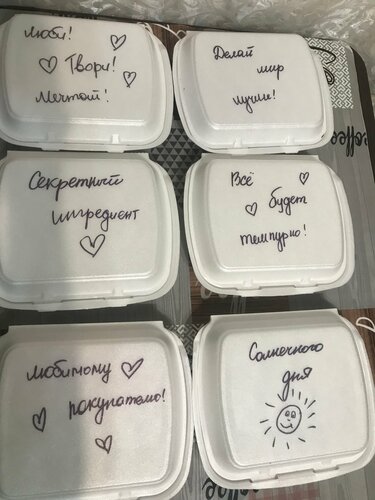 Люби!
Твори!
Мечтай!
Делай
мир
лучше!
Секретный
ингредиент
Всё
будет
темпурно!
Любимому
покупателю!
Солнечного
дня
coffee
coffee